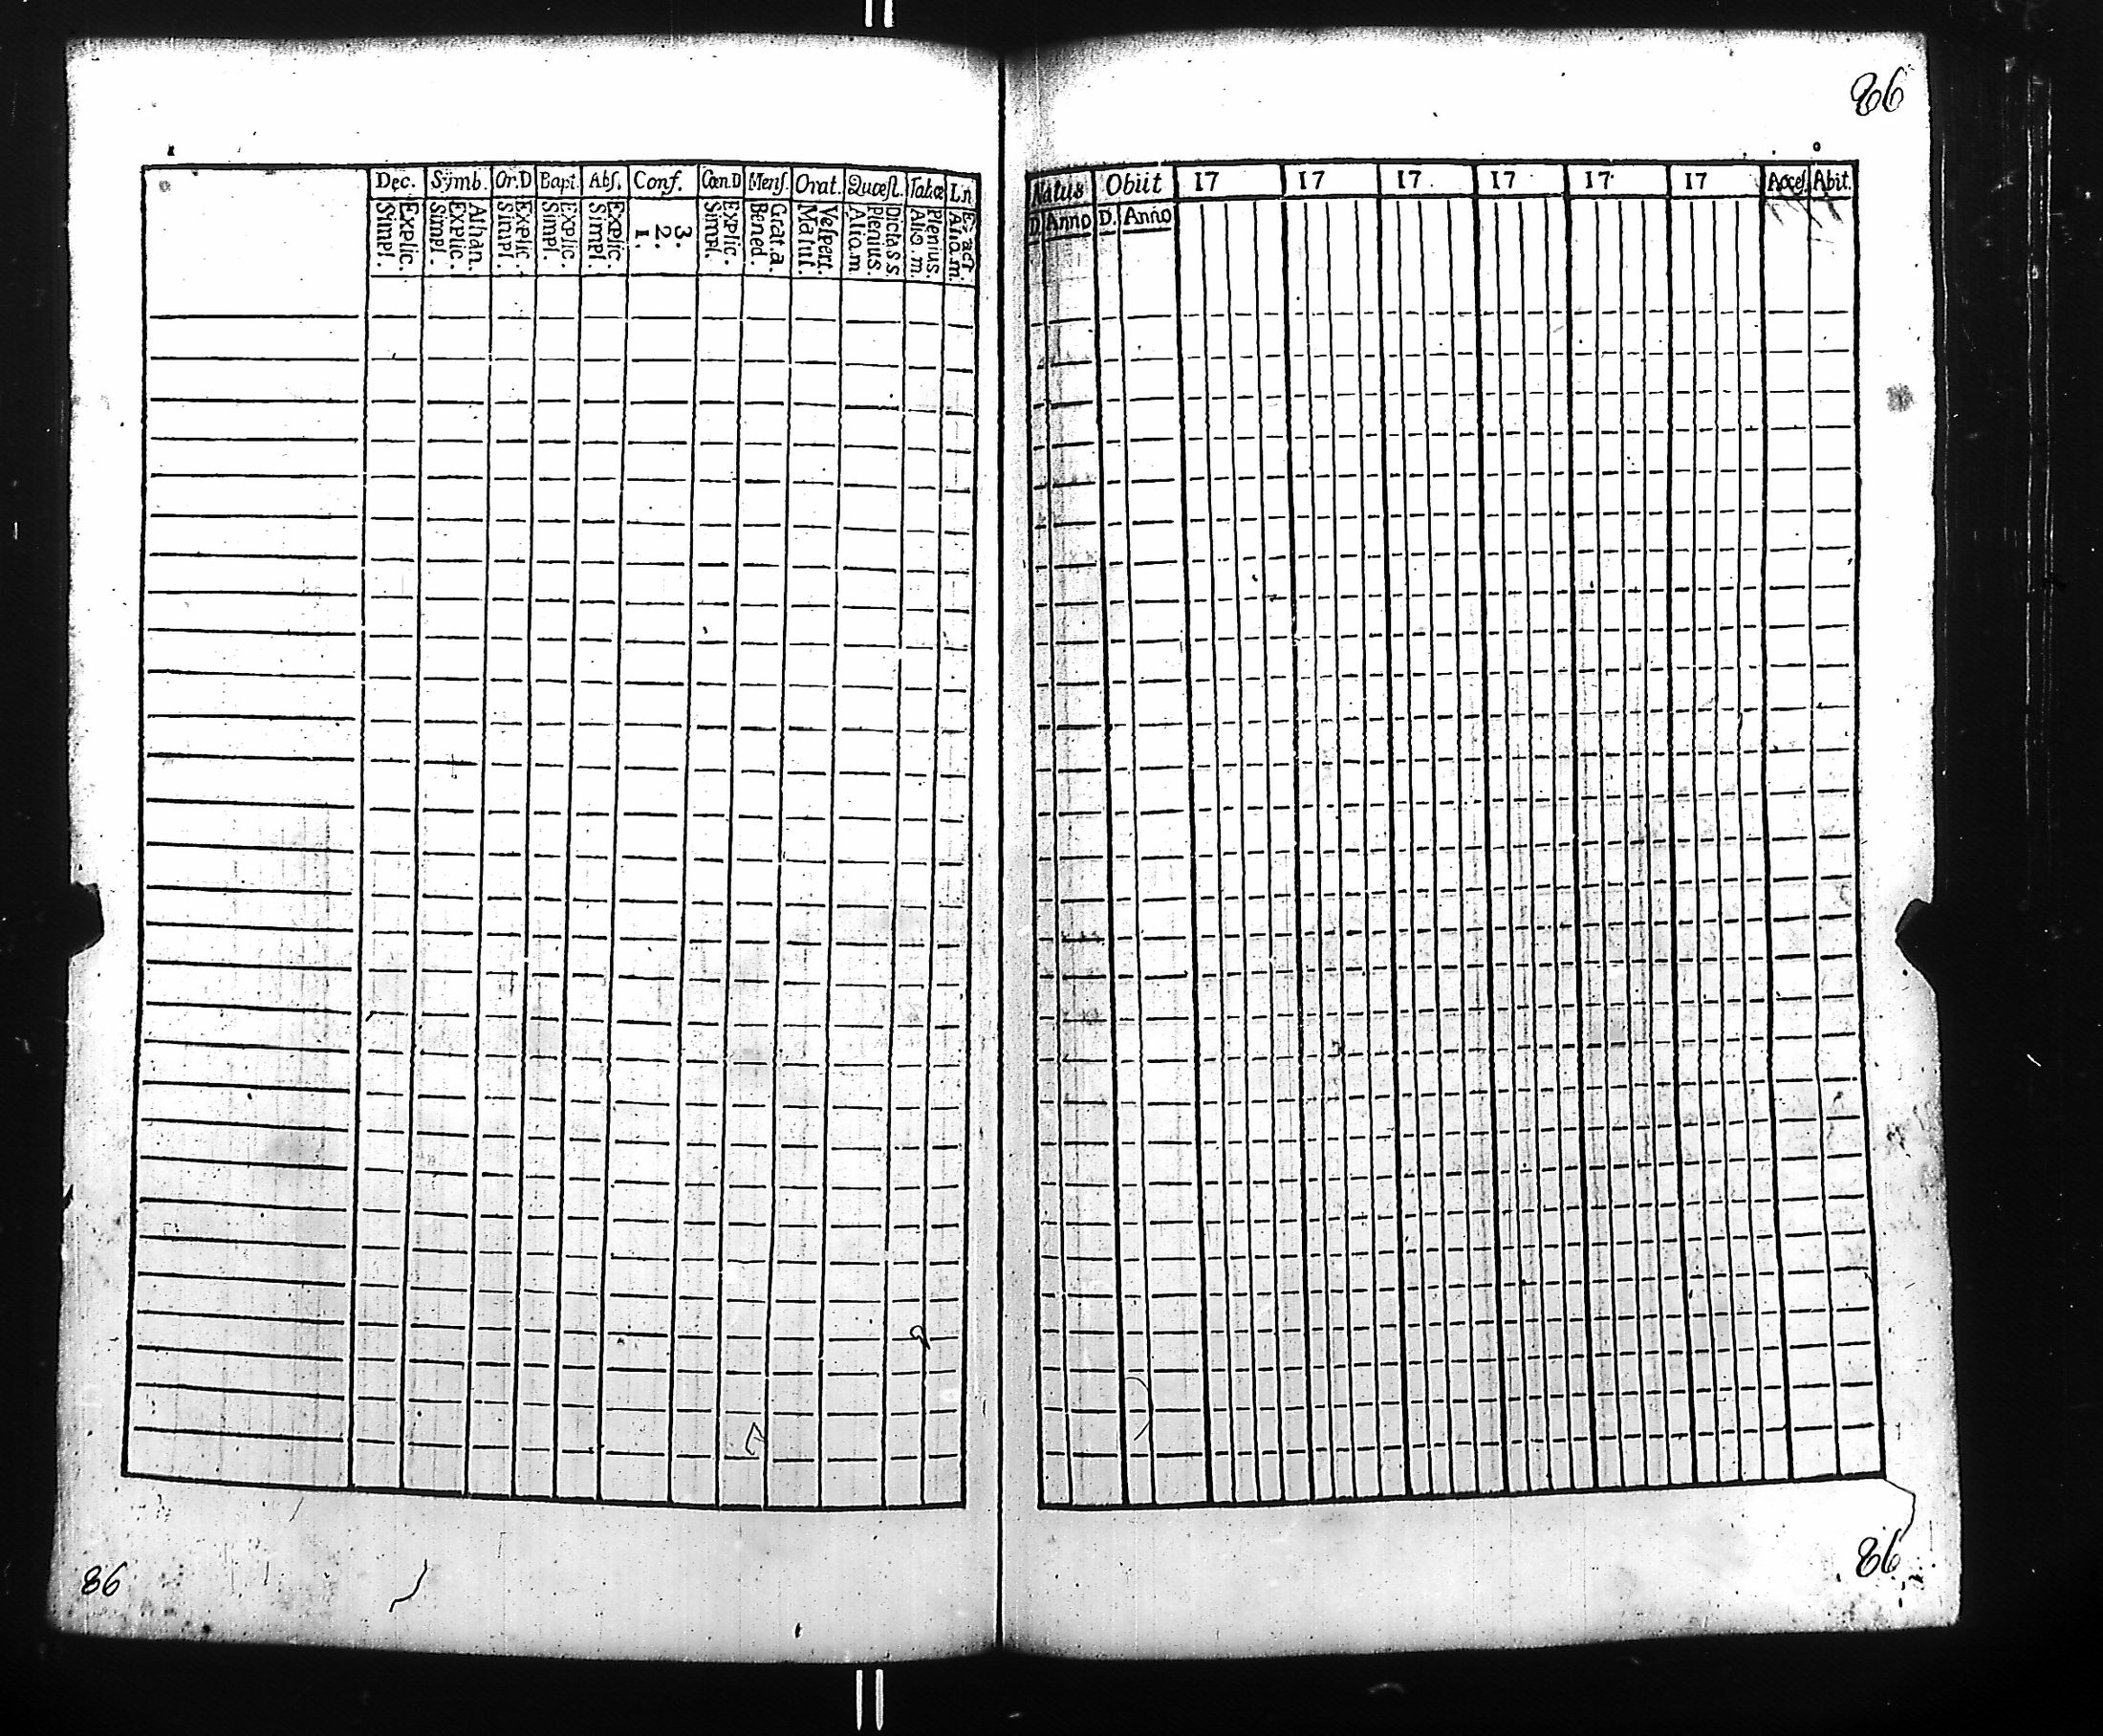 86
Dec. Symb. Or.D Bapt. Abſ. Conf. Cœn.D Menſ. Orat. Quæſt. Tabæ Ln
Explic. Simpl.
Athan. Explic. Simpl.
Explic. Simpl.
Explic. Simpl.
Explic. Simpl.
3. 2. 1.
Explic. Simpl.
Grat.a. Bened.
Veſpert. Matut.
Dicta S S. Plenius. Alio.m
Plenius. Alio.m.
Exact Alio.m.
Natus Obiit 17 17 17 17 17 17 Acceſ. Abit.
D. Anno D. Anno
86
86